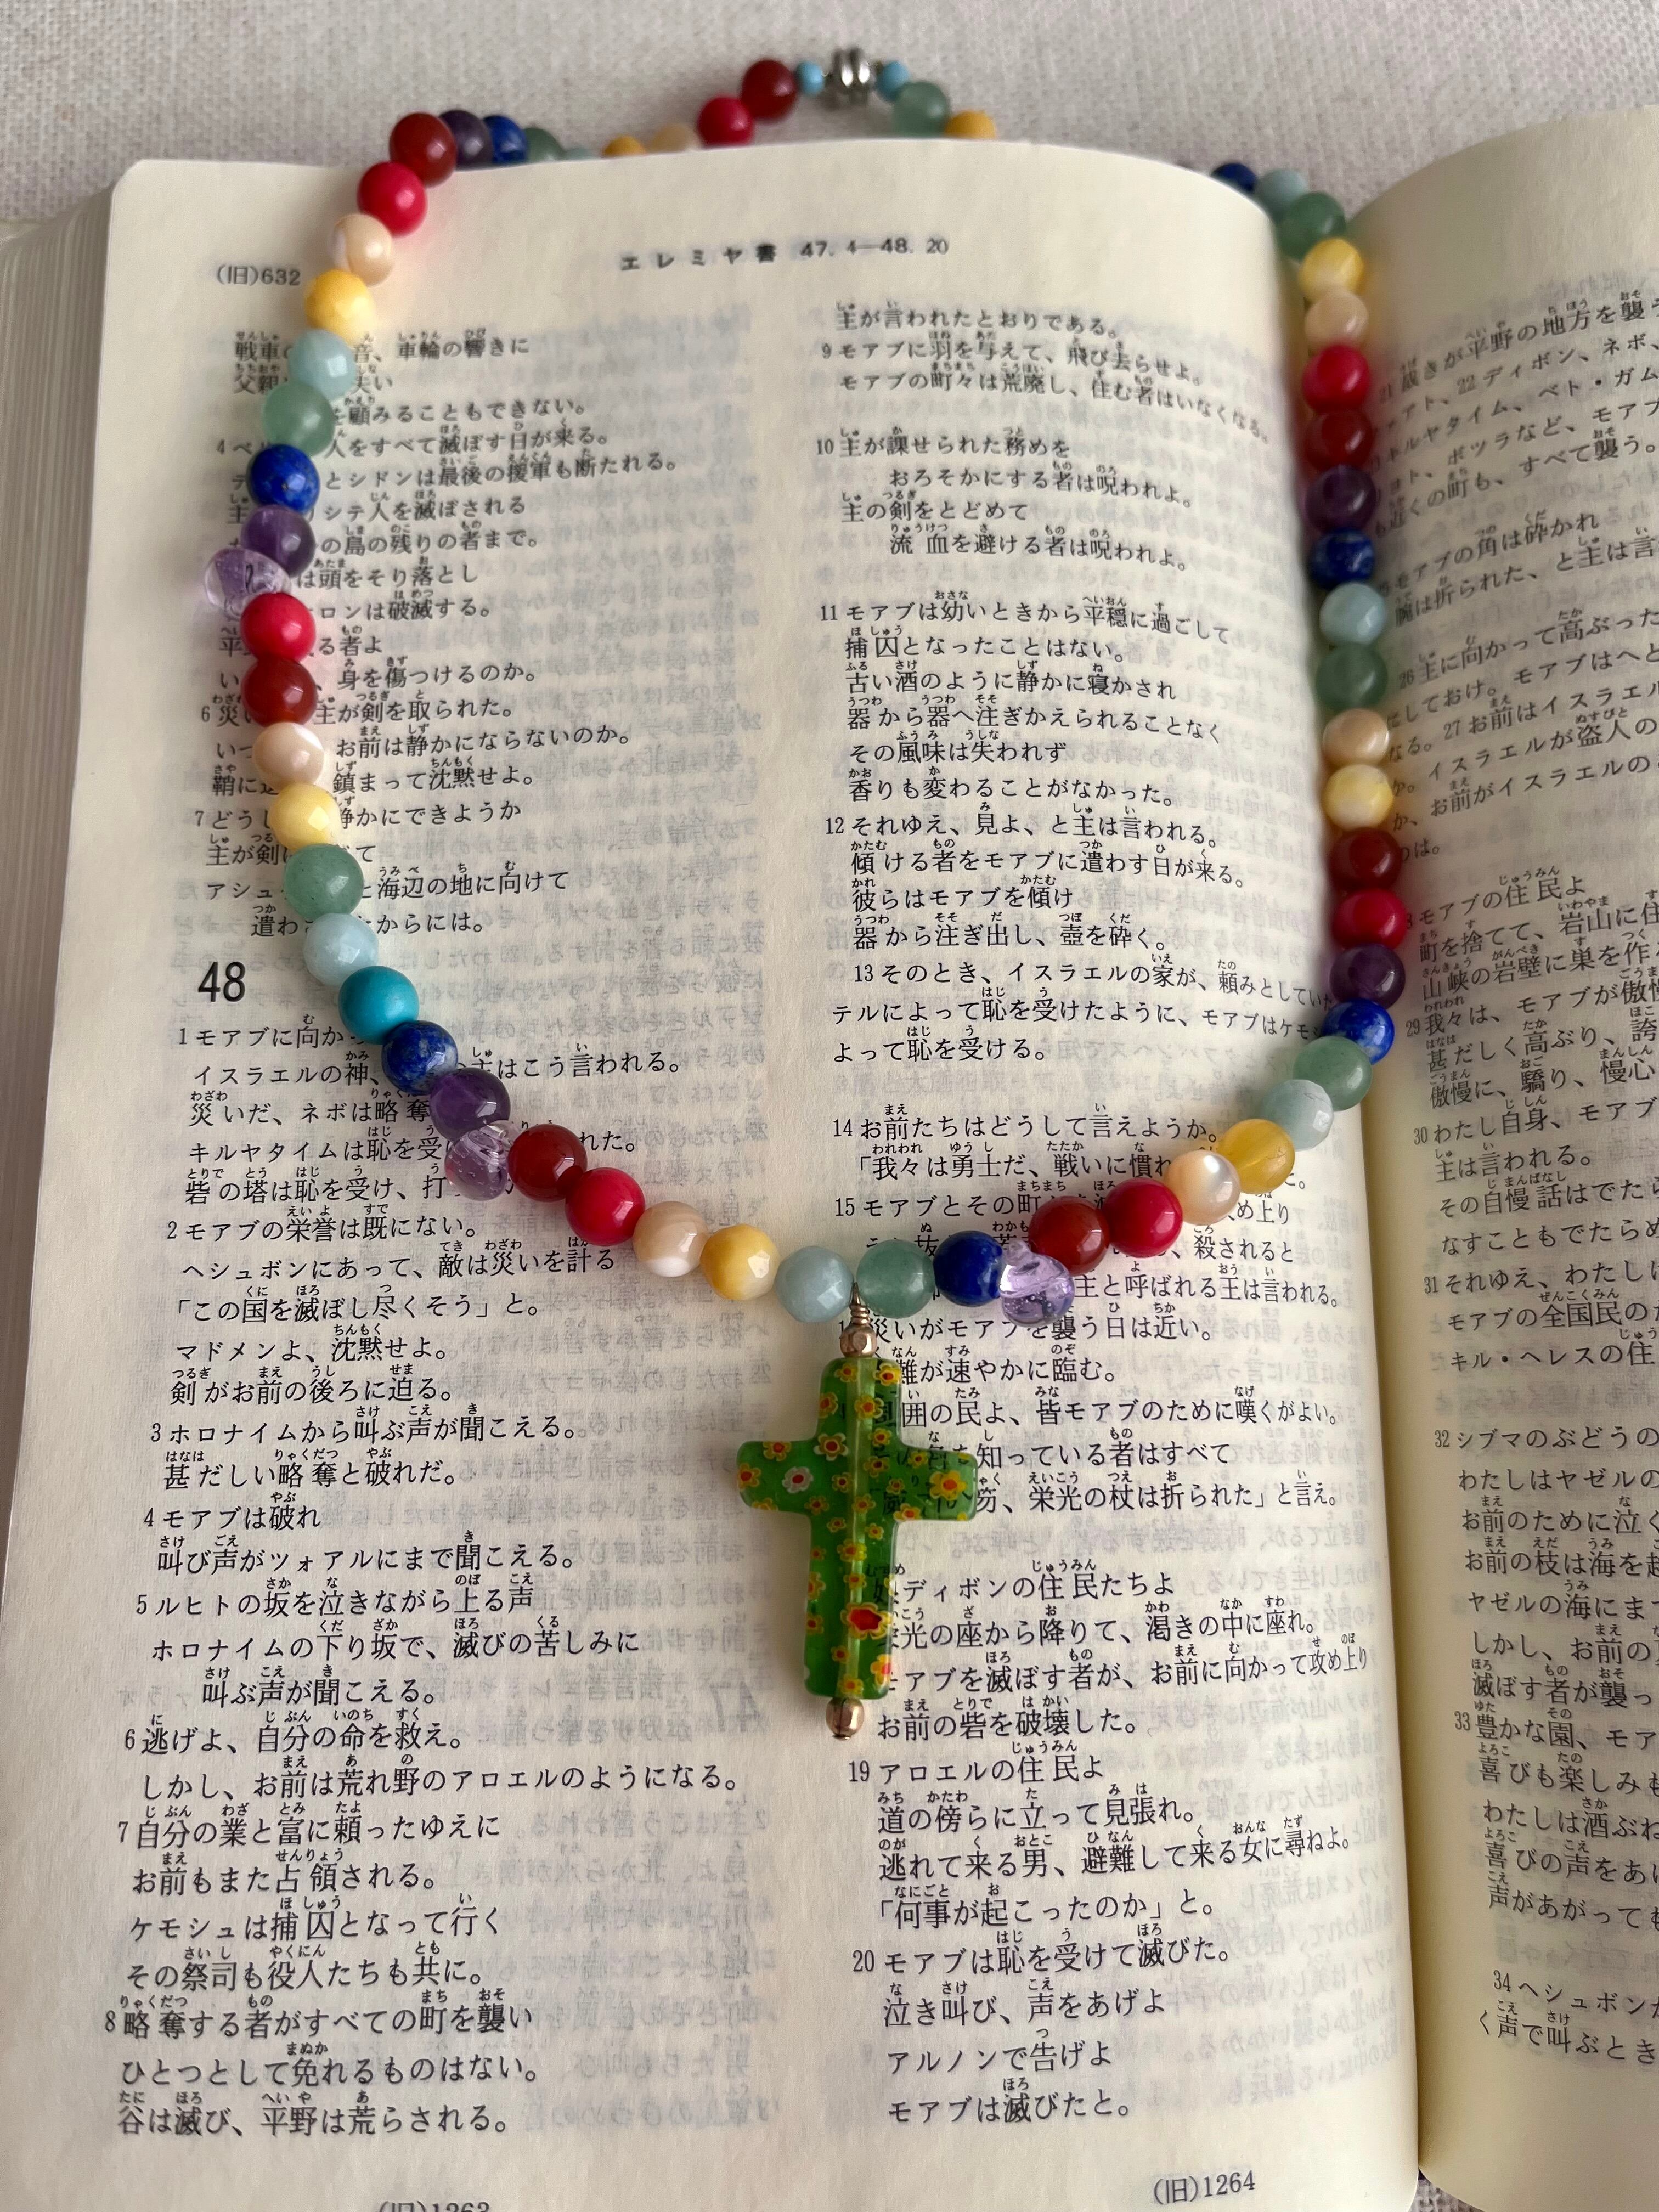 (旧)632
エレミヤ書 47.4―48.20
戦車の 音、車輪の響きに
父親 失い
を顧みることもできない。
4 ペ 人をすべて滅ぼす日が来る。
テ とシドンは最後の援軍も断たれる。
主 リシテ人を滅ぼされる
の島の残りの者まで。
は頭をそり落とし
ロンは破滅する。
平 る者よ
い 、身を傷つけるのか。
6 災い 主が剣を取られた。
いつ お前は静かにならないのか。
鞘に 鎮まって沈黙せよ。
7 どうし 静かにできようか
主が剣に て
アシュ と海辺の地に向けて
遣わさ からには。
48
1 モアブに向か
イスラエルの神、 主はこう言われる。
災いだ、ネボは略奪
キルヤタイムは恥を受 れた。
砦の塔は恥を受け、打
2 モアブの栄誉は既にない。
ヘシュボンにあって、敵は災いを計る
「この国を滅ぼし尽くそう」と。
マドメンよ、沈黙せよ。
剣がお前の後ろに迫る。
3 ホロナイムから叫ぶ声が聞こえる。
甚だしい略奪と破れだ。
4 モアブは破れ
叫び声がツォアルにまで聞こえる。
5 ルヒトの坂を泣きながら上る声
ホロナイムの下り坂で、滅びの苦しみに
叫ぶ声が聞こえる。
6 逃げよ、自分の命を救え。
しかし、お前は荒れ野のアロエルのようになる。
7 自分の業と富に頼ったゆえに
お前もまた占領される。
ケモシュは捕囚となって行く
その祭司も役人たちも共に。
8 略奪する者がすべての町を襲い
ひとつとして免れるものはない。
谷は滅び、平野は荒らされる。
(旧)1263
主が言われたとおりである。
9 モアブに羽を与えて、飛び去らせよ。
モアブの町々は荒廃し、住む者はいなくなる。
10 主が課せられた務めを
おろそかにする者は呪われよ。
主の剣をとどめて
流血を避ける者は呪われよ。
11 モアブは幼いときから平穏に過ごして
捕囚となったことはない。
古い酒のように静かに寝かされ
器から器へ注ぎかえられることなく
その風味は失われず
香りも変わることがなかった。
12 それゆえ、見よ、と主は言われる。
傾ける者をモアブに遣わす日が来る。
彼らはモアブを傾け
器から注ぎ出し、壺を砕く。
13 そのとき、イスラエルの家が、頼みとしていた
テルによって恥を受けたように、モアブはケモシ
よって恥を受ける。
14 お前たちはどうして言えようか。
「我々は勇士だ、戦いに慣れ
15 モアブとその町 め上り
坂 、殺されると
主と呼ばれる王は言われる。
災いがモアブを襲う日は近い。
難が速やかに臨む。
囲の民よ、皆モアブのために嘆くがよい。
知っている者はすべて
、栄光の杖は折られた」と言え。
ディボンの住民たちよ
光の座から降りて、渇きの中に座れ。
モアブを滅ぼす者が、お前に向かって攻め上り
お前の砦を破壊した。
19 アロエルの住民よ
道の傍らに立って見張れ。
逃れて来る男、避難して来る女に尋ねよ。
「何事が起こったのか」と。
20 モアブは恥を受けて滅びた。
泣き叫び、声をあげよ
アルノンで告げよ
モアブは滅びたと。
(旧)1264
21 裁きが平野の地方を襲う
22 ディボン、ネボ、
キルヤタイム、ベト・ガム
ヨト、ボツラなど、モアブ
近くの町も、すべて襲う。
モアブの角は砕かれ
腕は折られた、と主は言
26 主に向かって高ぶった
にしておけ。モアブはへど
なる。27 お前はイスラエル
か。イスラエルが盗人の
か、お前がイスラエルのこ
のは。
モアブの住民よ
町を捨てて、岩山に住
山峡の岩壁に巣を作
29 我々は、モアブが傲慢
甚だしく高ぶり、誇
傲慢に、驕り、慢心
30 わたし自身、モアブ
主は言われる。
その自慢話はでたら
なすこともでたらめ
31 それゆえ、わたしは
モアブの全国民のた
キル・ヘレスの住
32 シブマのぶどうの
わたしはヤゼルの
お前のために泣く
お前の枝は海を越
ヤゼルの海にまで
しかし、お前の
滅ぼす者が襲っ
33 豊かな園、モア
喜びも楽しみも
わたしは酒ぶね
喜びの声をあげ
声があがっても
34 ヘシュボンが
く声で叫ぶとき